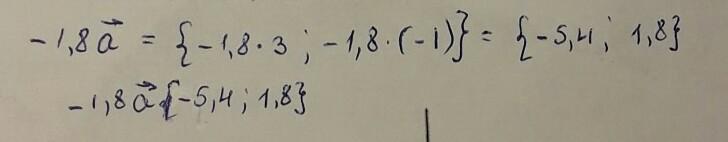 -1,8 a⃗ = {-1,8·3 ; -1,8·(-1)} = {-5,4 ; 1,8}
-1,8 a⃗ {-5,4 ; 1,8}